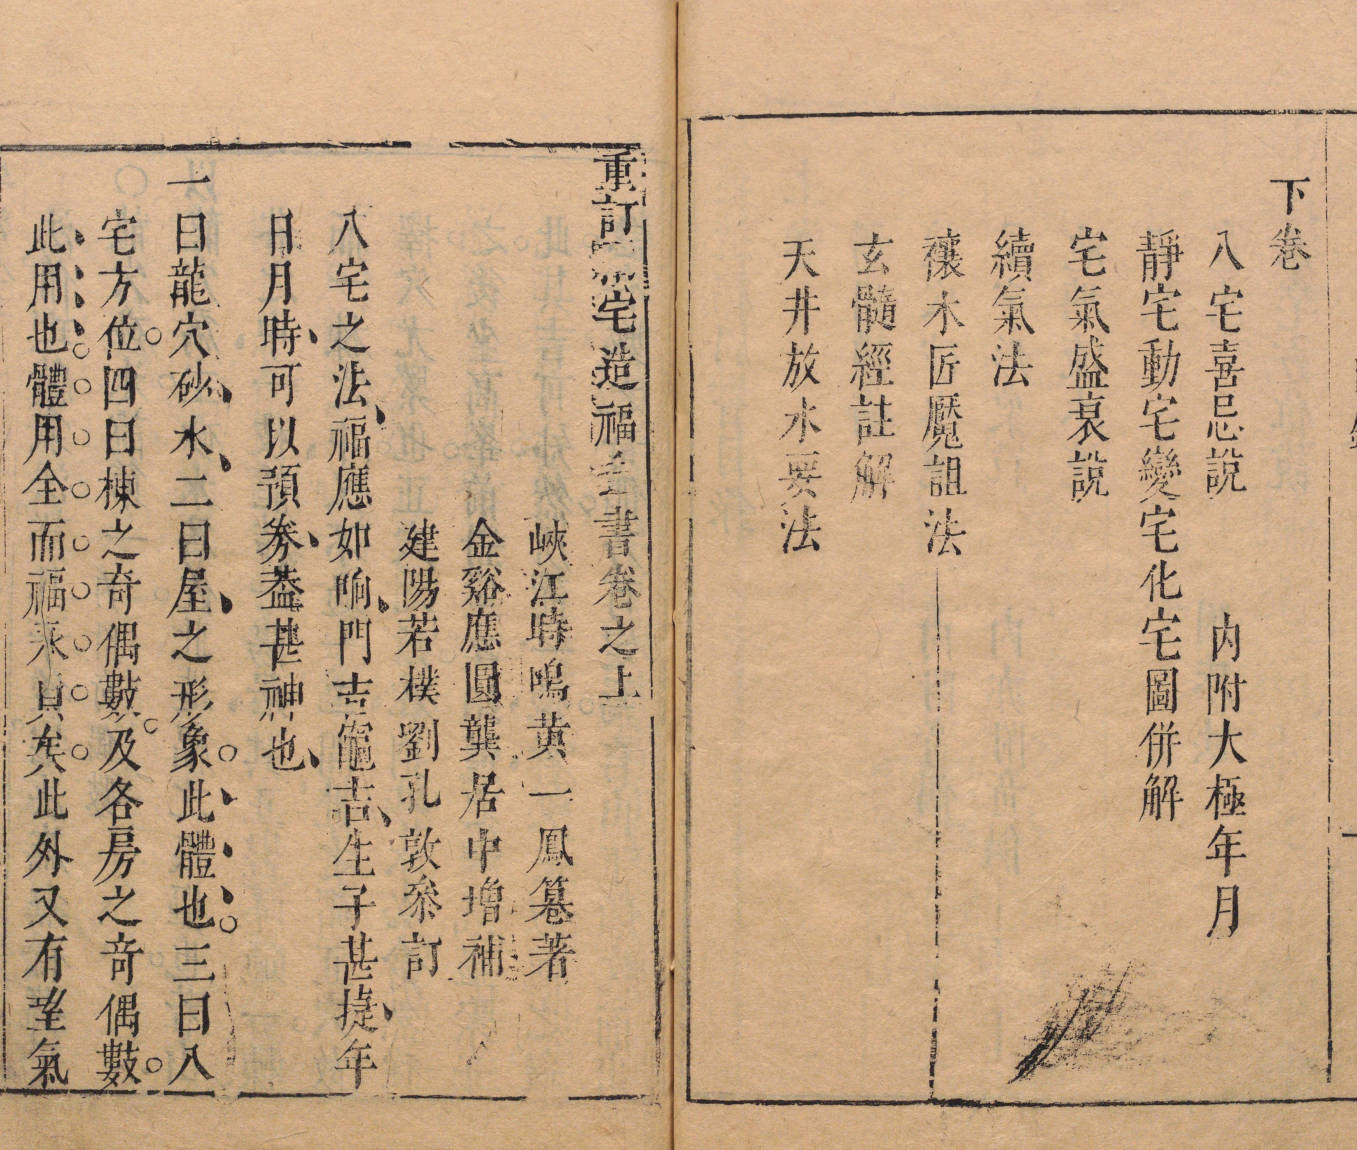 下卷
八宅喜忌說 内附大極年月
靜宅動宅變宅化宅圖併解
宅氣盛衰說
續氣法
禳木匠魘詛法
玄髓經註解
天井放水要法
重訂宅造福全書卷之上
峽江時鳴黄一鳳纂著
金谿應圓龔居中增補
建陽若樸劉孔敦叅訂
八宅之法福應如响門吉竈吉生子甚捷年
日月時可以預券葢甚神也
一曰龍穴砂水二曰屋之形象此體也三曰八
宅方位四曰棟之奇偶數及各房之竒偶數
此用也體用全而福永貞矣此外又有㘴氣